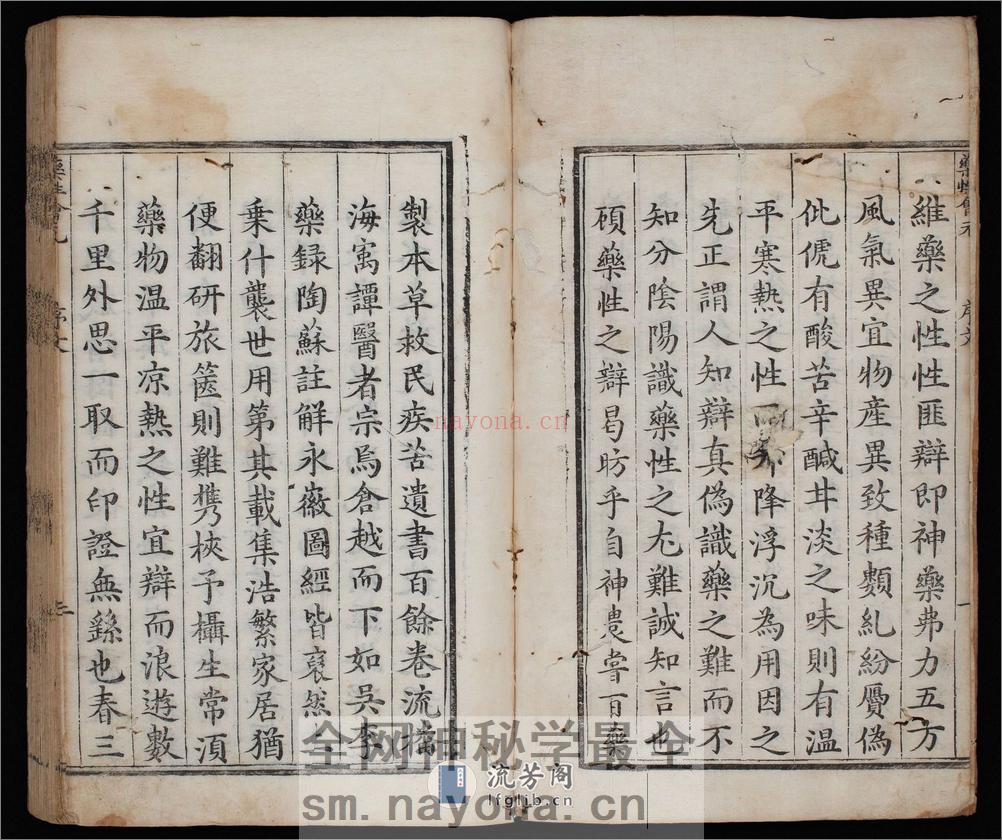 藥性會元
序文
一
維藥之性性匪辯即神藥弗力五方
風氣異宜物產異致種類糺紛贋偽
仳俿有酸苦辛鹹甘淡之味則有溫
平寒熱之性降浮沉為用因之
先正謂人知辯真偽識藥之難而不
知分陰陽識藥性之尤難誠知言也
碩藥性之辯曷昉乎自神農甞百藥
製本草救民疾苦遺書百餘卷流播
海寓譚醫者宗焉倉越而下如吳李
藥録陶蘇註解永徽圖經皆裒然
乗什襲世用第其載集浩繁家居猶
便翻研旅篋則難携挾予攝生常湏
藥物溫平凉熱之性宜辯而浪遊數
千里外思一取而印證無繇也春三
藥性會元
序文
二
nayona.cn
全网神秘学最全
流芳阁
lfglib.cn
sm.nayona.cn